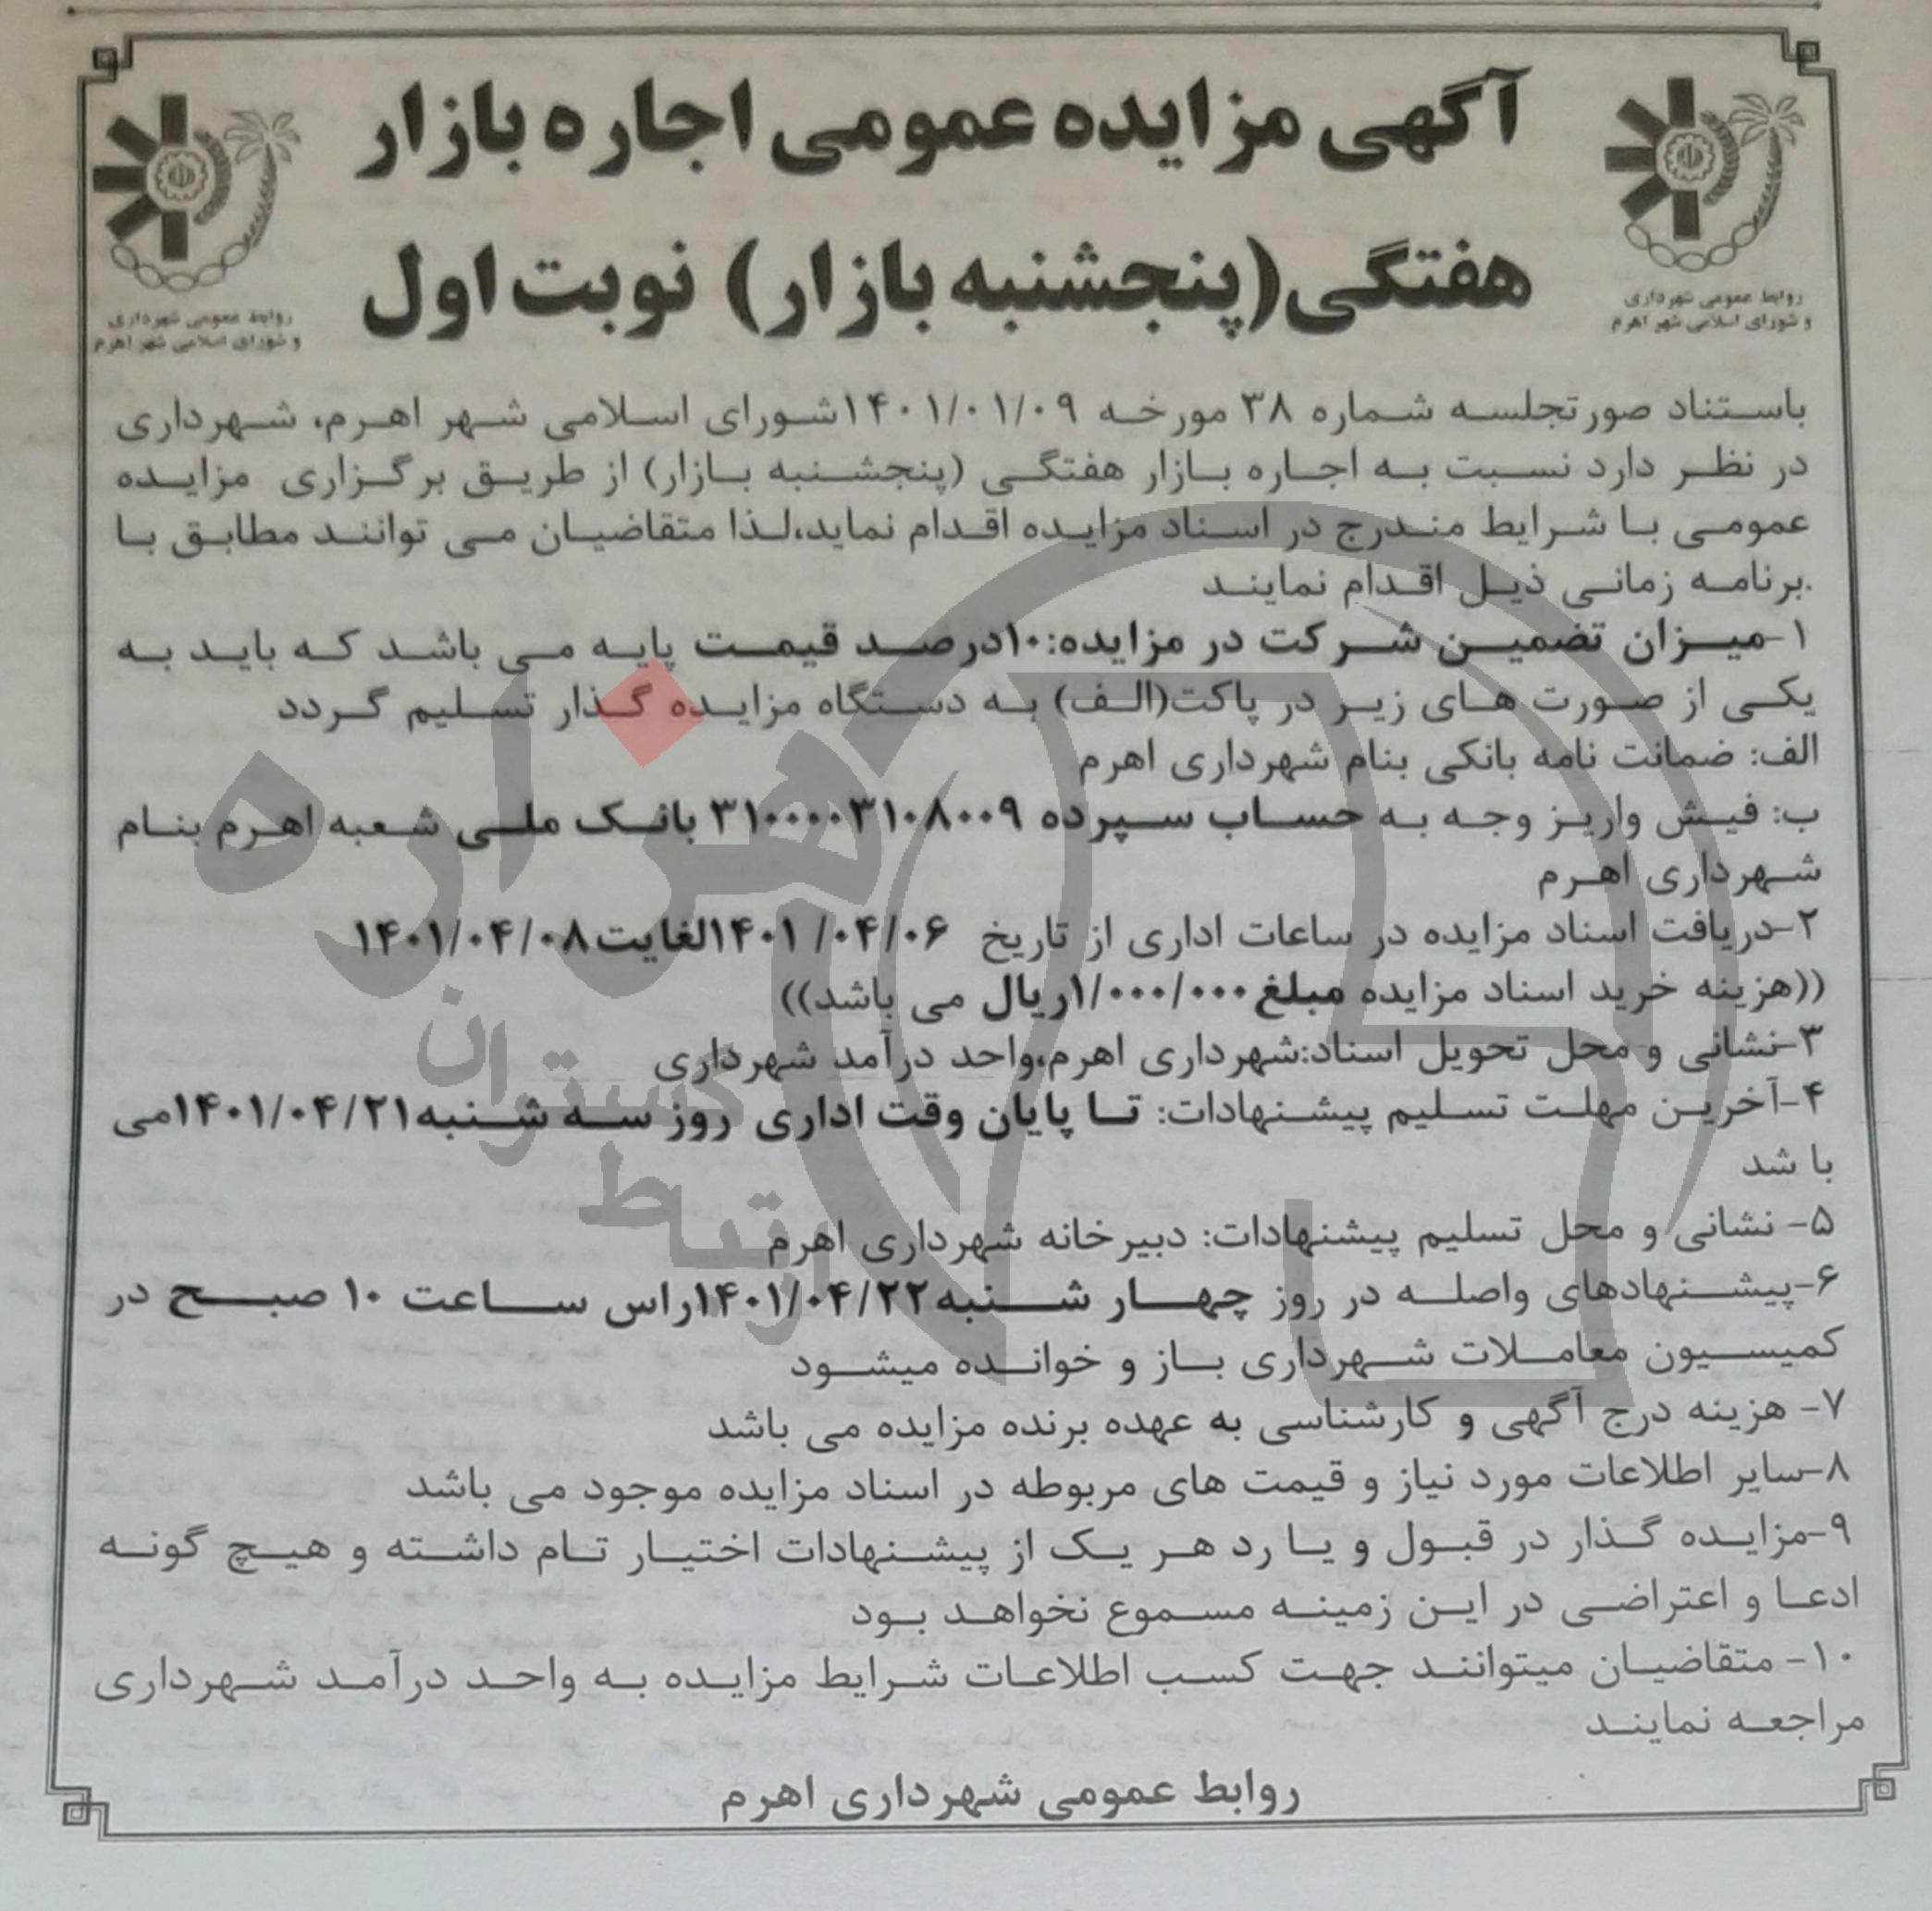 آگهی مزایده عمومی اجاره بازار
هفتگی(پنجشنبه بازار) نوبت اول
روابط عمومی شهرداری
و شورای اسلامی شهر اهرم
روابط عمومی شهرداری
و شورای اسلامی شهر اهرم
باستناد صورتجلسه شماره ۳۸ مورخه ۱۴۰۱/۰۱/۰۹شورای اسلامی شهر اهرم، شهرداری
در نظر دارد نسبت به اجاره بازار هفتگی (پنجشنبه بازار) از طریق برگزاری مزایده
عمومی با شرایط مندرج در اسناد مزایده اقدام نماید،لذا متقاضیان می توانند مطابق با
.برنامه زمانی ذیل اقدام نمایند
۱-میزان تضمین شرکت در مزایده:۱۰درصد قیمت پایه می باشد که باید به
یکی از صورت های زیر در پاکت(الف) به دستگاه مزایده گذار تسلیم گردد
الف: ضمانت نامه بانکی بنام شهرداری اهرم
ب: فیش واریز وجه به حساب سپرده ۳۱۰۰۰۰۳۱۰۸۰۰۹ بانک ملی شعبه اهرم بنام
شهرداری اهرم
۲-دریافت اسناد مزایده در ساعات اداری از تاریخ ۱۴۰۱/۰۴/۰۶لغایت۱۴۰۱/۰۴/۰۸
((هزینه خرید اسناد مزایده مبلغ۱/۰۰۰/۰۰۰ریال می باشد))
۳-نشانی و محل تحویل اسناد:شهرداری اهرم،واحد درآمد شهرداری
۴-آخرین مهلت تسلیم پیشنهادات: تا پایان وقت اداری روز سه شنبه۱۴۰۱/۰۴/۲۱می
با شد
۵- نشانی و محل تسلیم پیشنهادات: دبیرخانه شهرداری اهرم
۶-پیشنهادهای واصله در روز چهار شنبه۱۴۰۱/۰۴/۲۲راس ساعت ۱۰ صبح در
کمیسیون معاملات شهرداری باز و خوانده میشود
۷- هزینه درج آگهی و کارشناسی به عهده برنده مزایده می باشد
۸-سایر اطلاعات مورد نیاز و قیمت های مربوطه در اسناد مزایده موجود می باشد
۹-مزایده گذار در قبول و یا رد هر یک از پیشنهادات اختیار تام داشته و هیچ گونه
ادعا و اعتراضی در این زمینه مسموع نخواهد بود
۱۰- متقاضیان میتوانند جهت کسب اطلاعات شرایط مزایده به واحد درآمد شهرداری
مراجعه نمایند
روابط عمومی شهرداری اهرم
هزاره
گستران
ارتباط